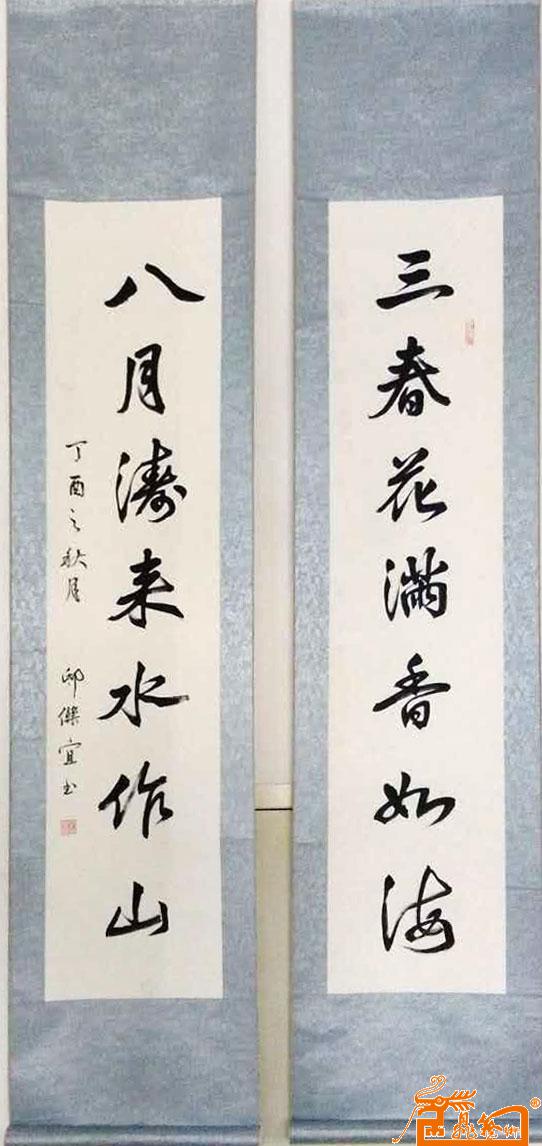 三春花满香如海
八月涛来水作山
丁酉之秋月 邱傑宜书